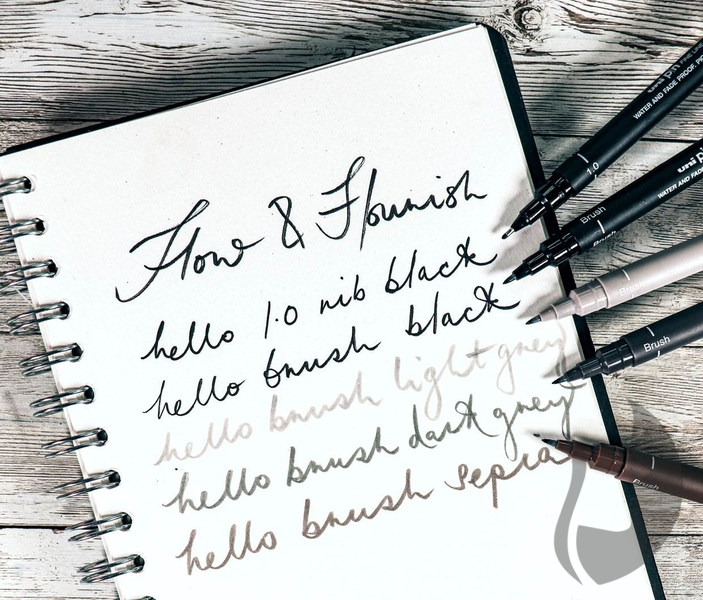 Flow & Flourish
hello 1.0 nib black
hello brush black
hello brush light grey
hello brush dark grey
hello brush sepia
uni pin FINE LINE
WATER AND FADE PROOF, PI
1.0
uni pi
WATER AND FADE
Brush
Brush
Brush
Brush
Brush